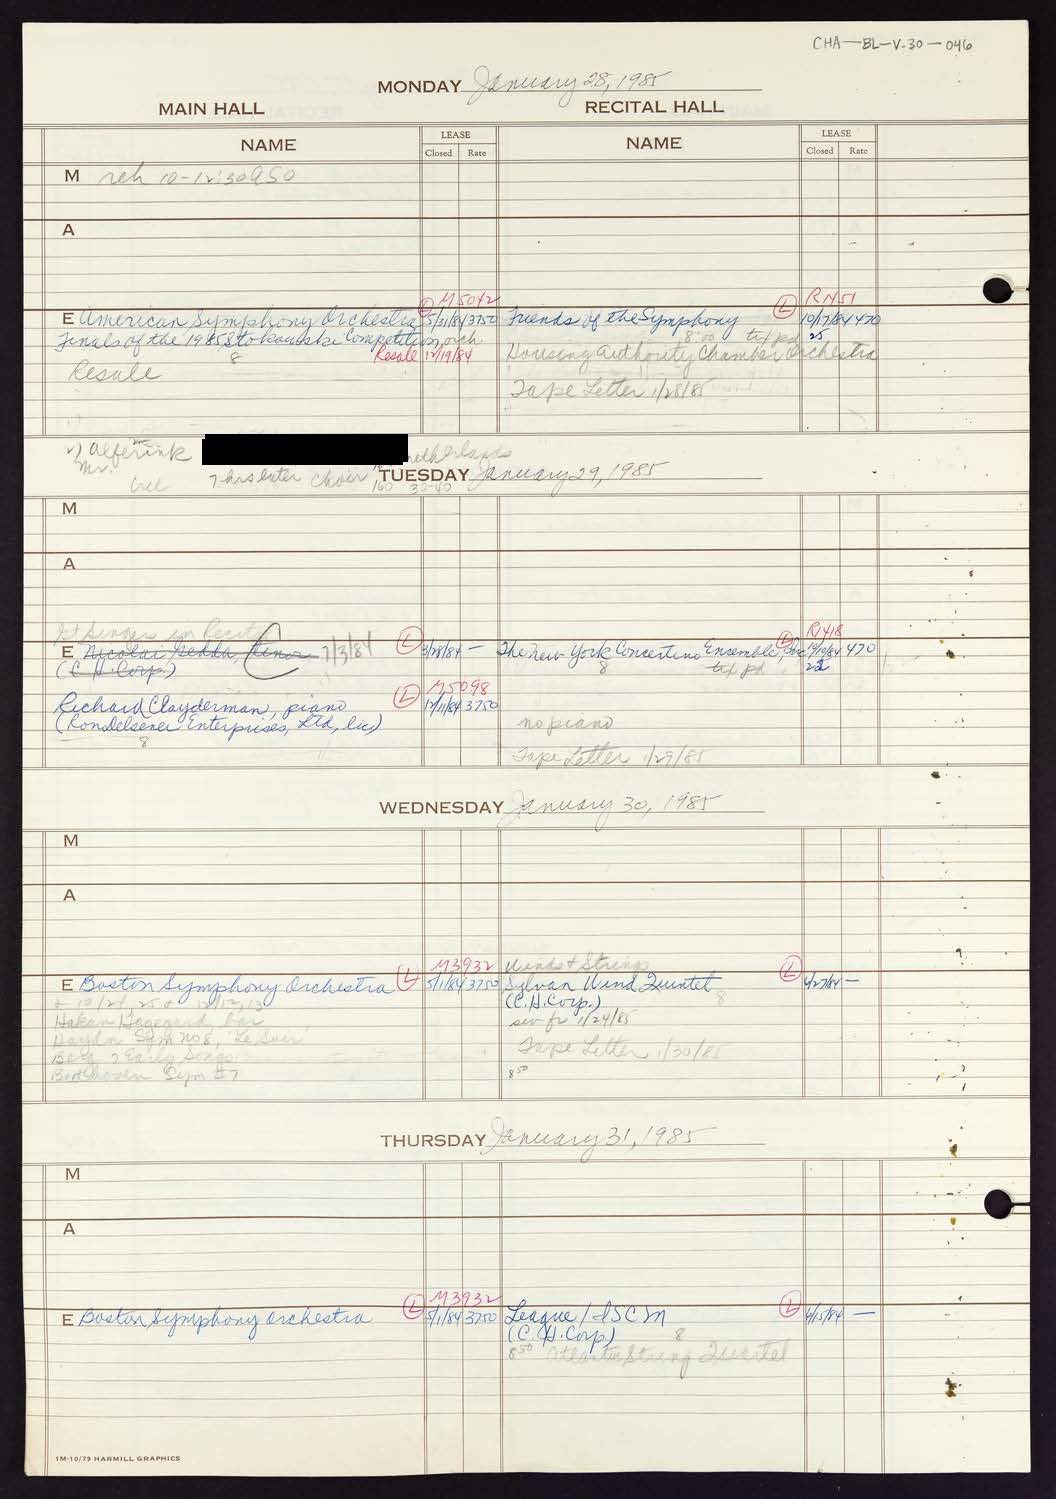 CHA-BL-V-30-046
MONDAY January 28, 1985
MAIN HALL RECITAL HALL
NAME LEASE NAME LEASE
Closed Rate Closed Rate
M reh 10-12:30 950
A
L M5042 L R1451
E American Symphony Orchestra 5/31/84 3750 Friends of the Symphony 10/17/84 470
Finals of the 1985 Stokowski Competition, orch 8:00 tix pd 25
8 Resale 12/19/84 Housing Authority Chamber Orchestra
Resale
Tape Letter 1/28/85
Alferink Netherlands
Mr. 7 hrs later choir
160 30-40
TUESDAY January 29, 1985
M
A
Singer in Recital L R1418
E Nicolai Gedda, tenor 7/3/84 L 3/28/84 — The New York Concertino Ensemble, Inc 9/10/84 470
(C.H. Corp.) 8 tix pd 25
L M5098
Richard Clayderman, piano 12/11/84 3750
(Ron Delsener Enterprises, Ltd, Inc) no piano
8
Tape Letter 1/29/85
WEDNESDAY January 30, 1985
M
A
M3932 Winds & Strings L
E Boston Symphony Orchestra L 5/1/84 3750 Sylvan Wind Quintet 4/27/84 —
& 10/24, 25 & 12/12, 13 (C.H. Corp.) 8
Hakan Hagegard, bar res fr 1/24/85
Haydn Sym No 8, "Le Soir Tape Letter 1/30/85
Berg 7 Early Songs 8⁵⁰
Beethoven Sym #7
THURSDAY January 31, 1985
M
A
L M3932 L
E Boston Symphony Orchestra 5/1/84 3750 League / ISCM 6/15/84 —
(C.H. Corp.) 8
8⁵⁰ Atlantic String Quartet
1M-10/79 HARMILL GRAPHICS